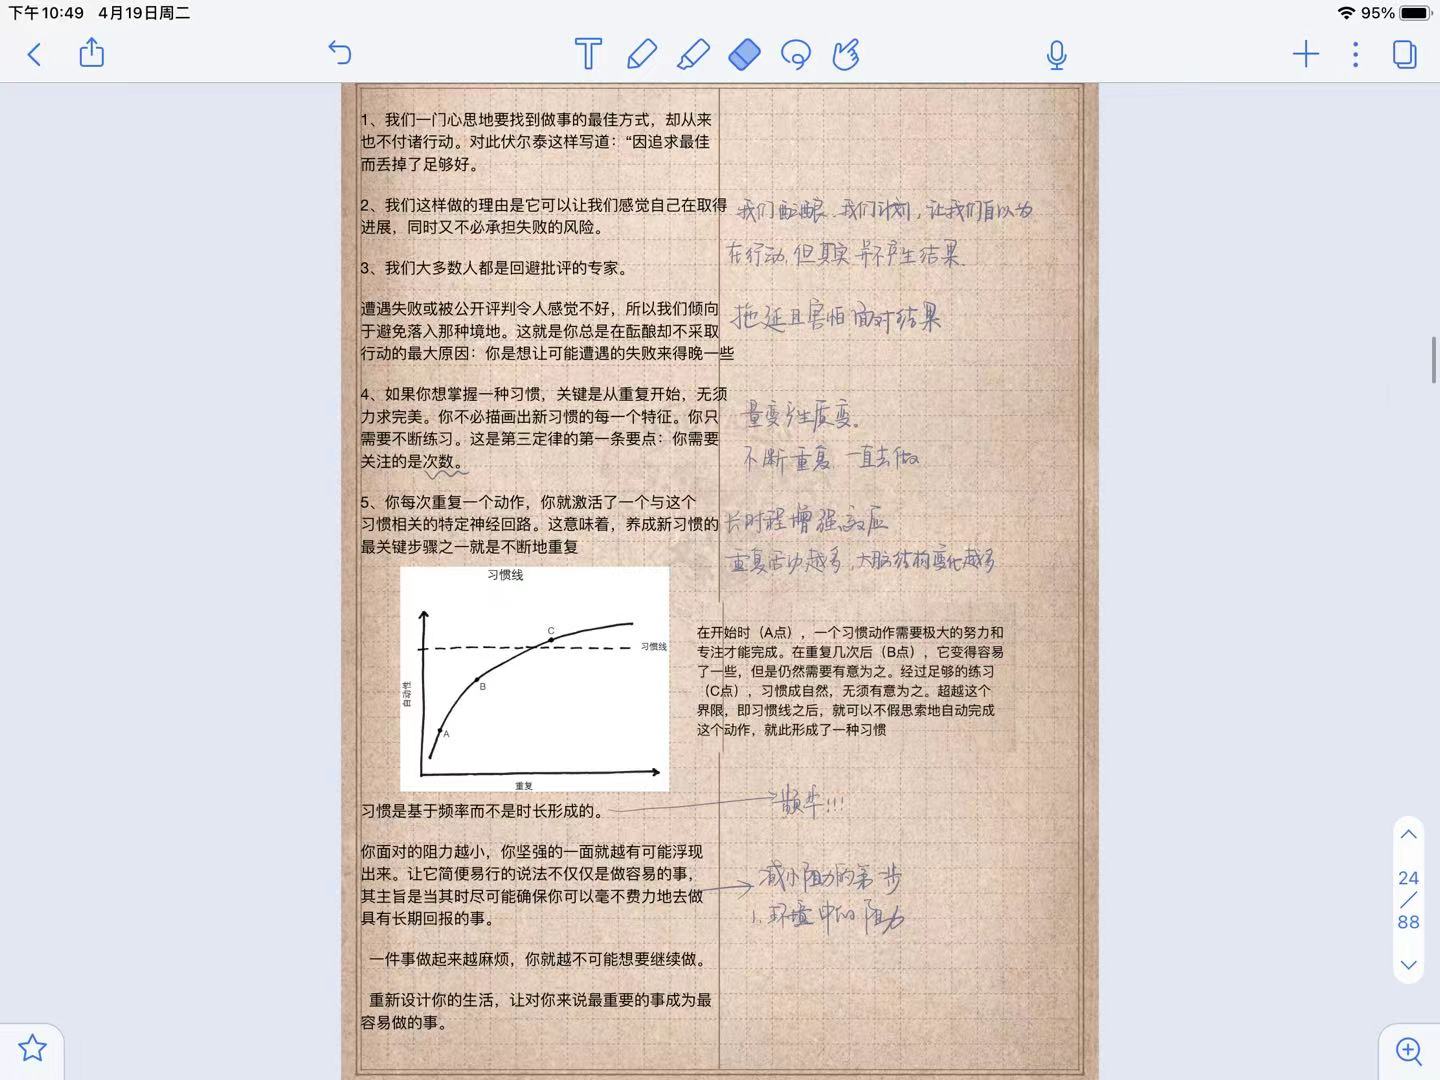 下午10:49 4月19日周二
95%
1、我们一门心思地要找到做事的最佳方式，却从来
也不付诸行动。对此伏尔泰这样写道：“因追求最佳
而丢掉了足够好。
2、我们这样做的理由是它可以让我们感觉自己在取得
进展，同时又不必承担失败的风险。
我们酝酿、我们计划，让我们自以为
在行动，但其实并不产生结果.
3、我们大多数人都是回避批评的专家。
遭遇失败或被公开评判令人感觉不好，所以我们倾向
于避免落入那种境地。这就是你总是在酝酿却不采取
行动的最大原因：你是想让可能遭遇的失败来得晚一些
拖延且害怕面对结果
4、如果你想掌握一种习惯，关键是从重复开始，无须
力求完美。你不必描画出新习惯的每一个特征。你只
需要不断练习。这是第三定律的第一条要点：你需要
关注的是次数。
量变产生质变。
不断重复 一直去做
5、你每次重复一个动作，你就激活了一个与这个
习惯相关的特定神经回路。这意味着，养成新习惯的
最关键步骤之一就是不断地重复
长时程增强效应
重复活动越多，大脑结构变化越多
习惯线
C
习惯线
B
自动性
A
重复
在开始时（A点），一个习惯动作需要极大的努力和
专注才能完成。在重复几次后（B点），它变得容易
了一些，但是仍然需要有意为之。经过足够的练习
（C点），习惯成自然，无须有意为之。超越这个
界限，即习惯线之后，就可以不假思索地自动完成
这个动作，就此形成了一种习惯
习惯是基于频率而不是时长形成的。
频率!!!
你面对的阻力越小，你坚强的一面就越有可能浮现
出来。让它简便易行的说法不仅仅是做容易的事，
其主旨是当其时尽可能确保你可以毫不费力地去做
具有长期回报的事。
减小阻力的第一步
1. 环境中的阻力
一件事做起来越麻烦，你就越不可能想要继续做。
重新设计你的生活，让对你来说最重要的事成为最
容易做的事。
24
/
88